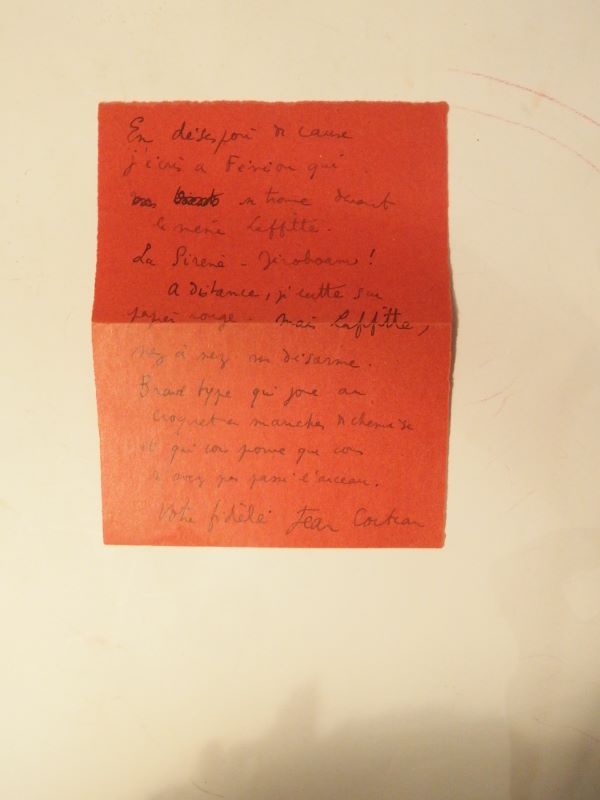 En désespoir de cause
j'écris à Fénéon qui
se trouve devant
le même Laffitte.
La Sirène - Jéroboam !
A distance, je lutte sur
papier rouge. Mais Laffitte,
nez à nez me désarme.
Brave type qui joue au
croquet en manches de chemise
et qui vous prouve que vous
n'avez pas passé l'arceau.
Votre fidèle Jean Cocteau